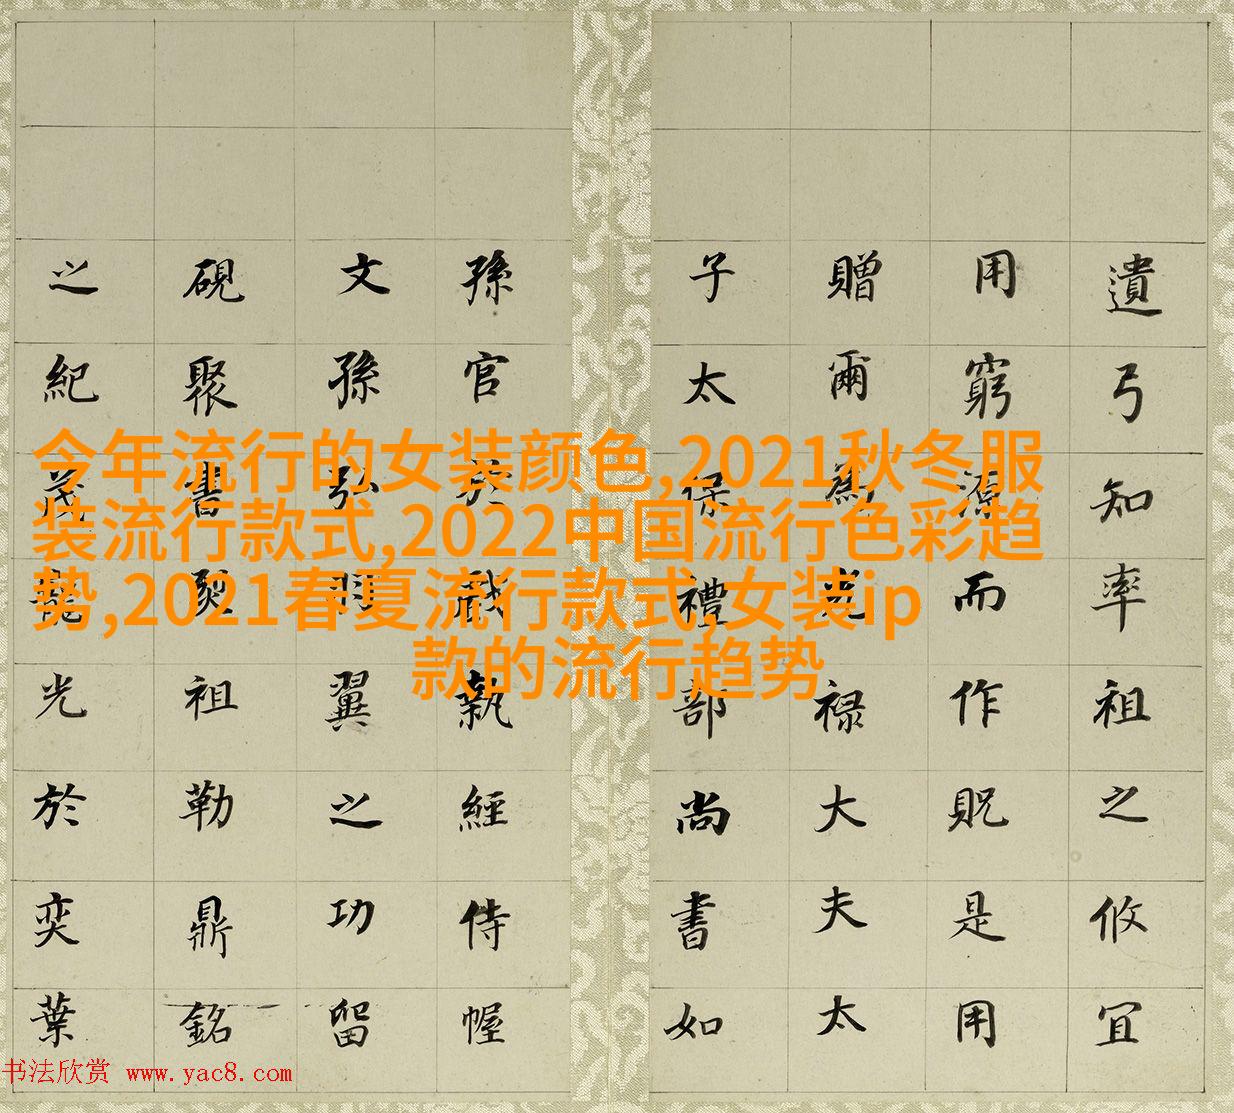 遺弓知率祖之攸宜
用窮源而作貺是用
贈爾為光祿大夫太
子太保禮部尚書如
孫官於戲執經侍幄
文孫弘羽翼之功留
硯聚書祖勒鼎銘
之紀茂光於奕葉
今年流行的女装颜色,2021秋冬服
装流行款式,2022中国流行色彩趋
势,2021春夏流行款式,女装ip
款的流行趋势
书法欣赏 www.yac8.com